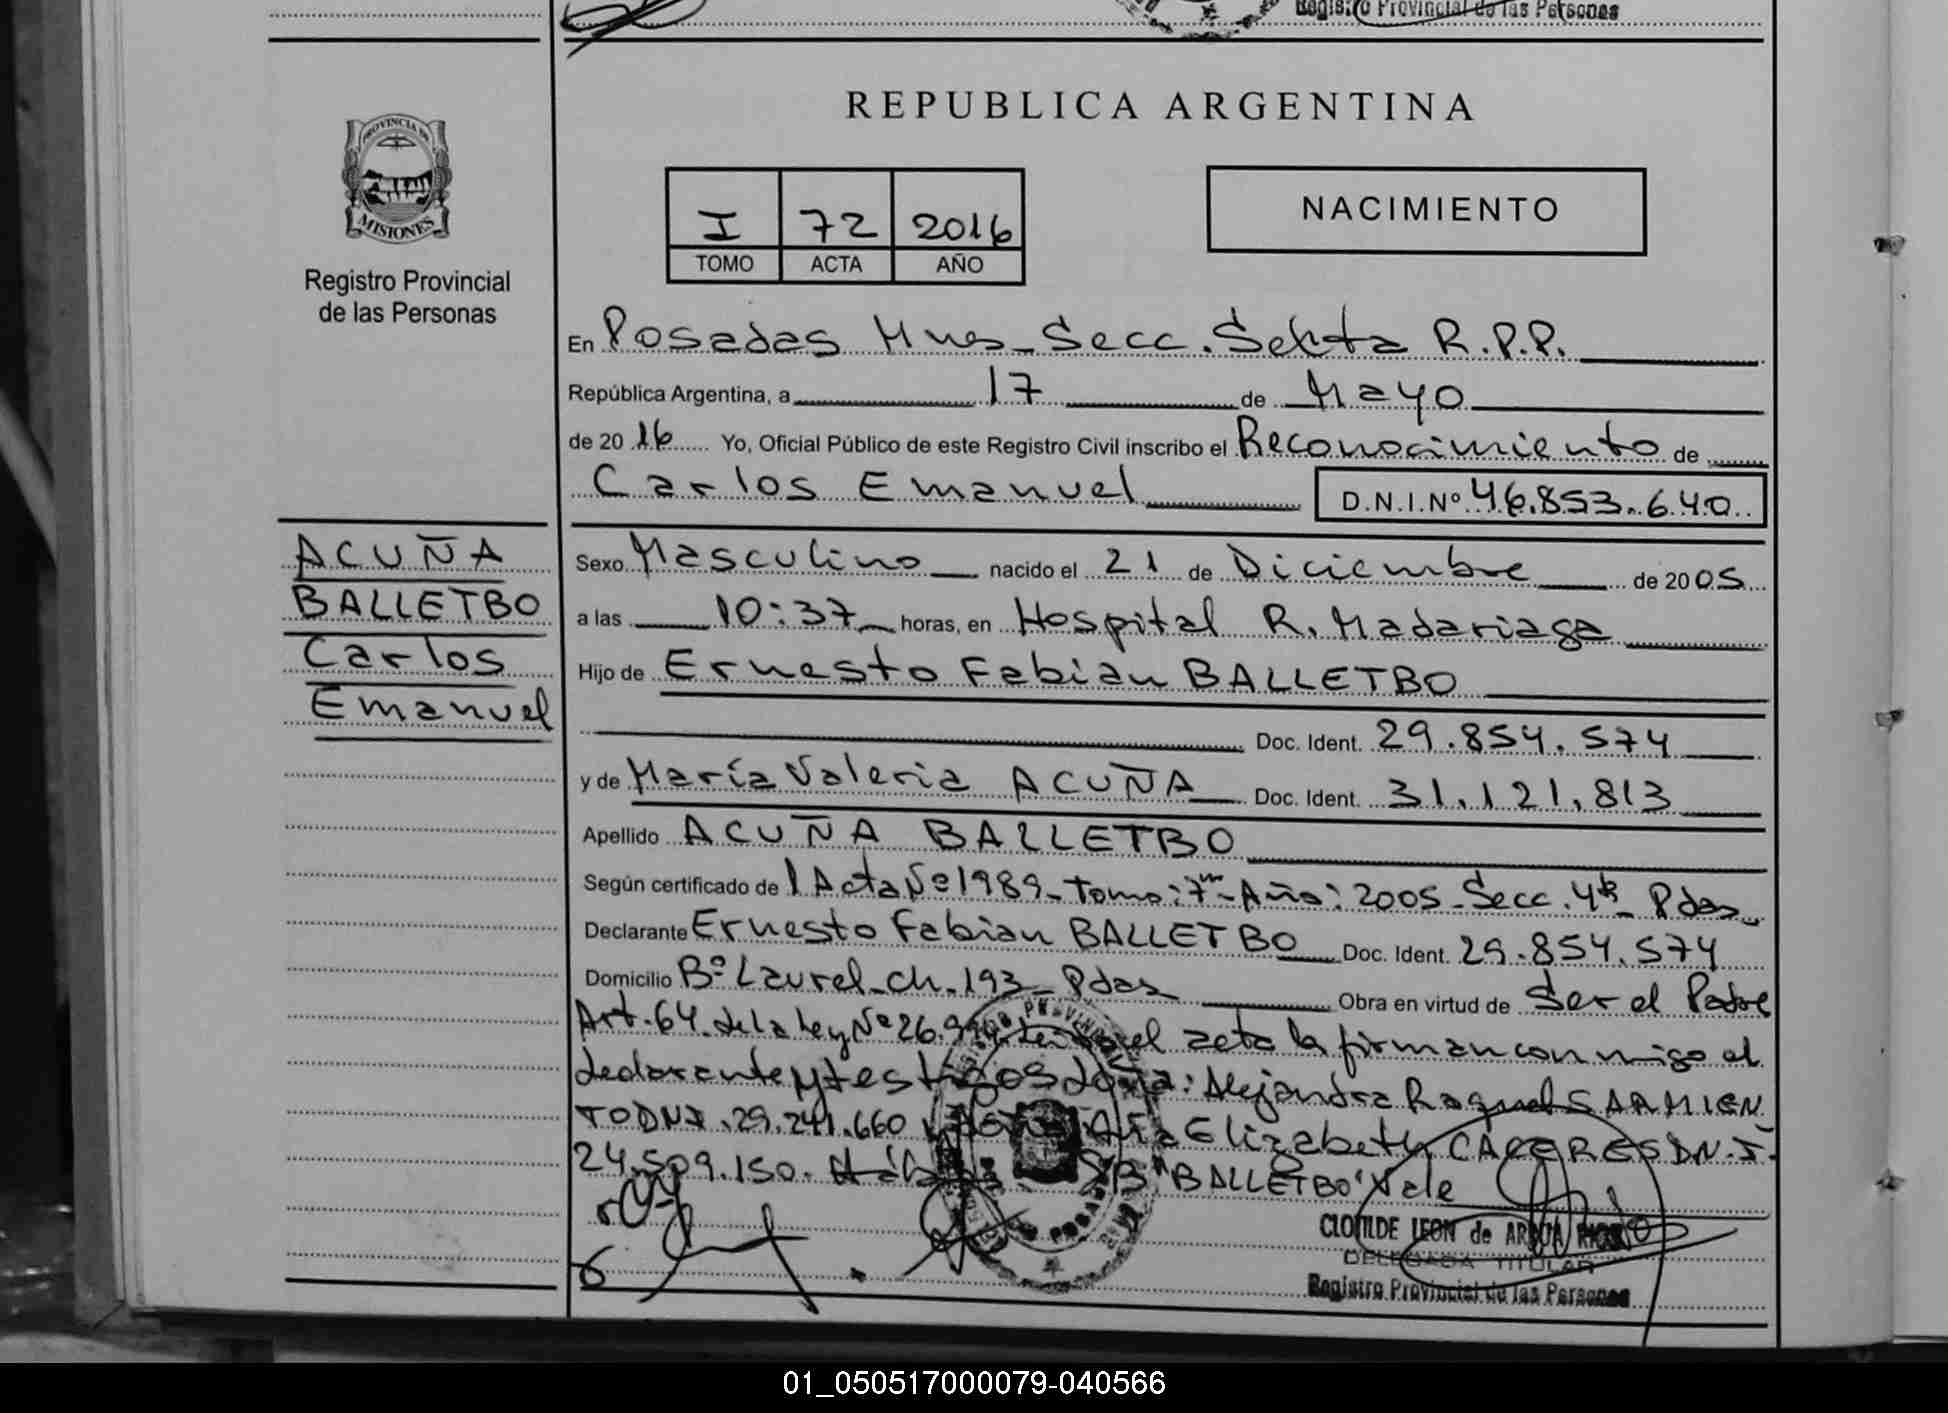 Registro Provincial de las Personas
REPUBLICA ARGENTINA
PROVINCIA DE
MISIONES
Registro Provincial
de las Personas
I 72 2016
TOMO ACTA AÑO
NACIMIENTO
En Posadas Mnes - Secc. Sexta R.P.P.
República Argentina, a 17 de Mayo
de 2016 Yo, Oficial Público de este Registro Civil inscribo el Reconocimiento de
Carlos Emanuel D.N.I.Nº 46.853.640
ACUÑA
BALLETBO
Carlos
Emanuel
Sexo Masculino nacido el 21 de Diciembre de 2005
a las 10:37 horas, en Hospital R. Madariaga
Hijo de Ernesto Fabian BALLETBO
Doc. Ident. 29.854.574
y de María Valeria ACUÑA Doc. Ident. 31.121.813
Apellido ACUÑA BALLETBO
Según certificado de 1 Acta Nº 1989 - Tomo: 7m - Año: 2005 - Secc. 4ta - Pdas
Declarante Ernesto Fabian BALLETBO Doc. Ident. 29.854.574
Domicilio Bº Laurel - Ch. 193 - Pdas Obra en virtud de Ser el Padre
Art. 64 de la Ley Nº 26.994 el acta la firman conmigo el
declarante y testigos doña: Alejandra Raquel SARMIEN
TO DNI. 29.241.660 Elizabeth CACERES DN.I.
24.509.150. "BALLETBO" Vale
CLOTILDE LEON de
DELEGADA TITULAR
Registro Provincial de las Personas
01_050517000079-040566